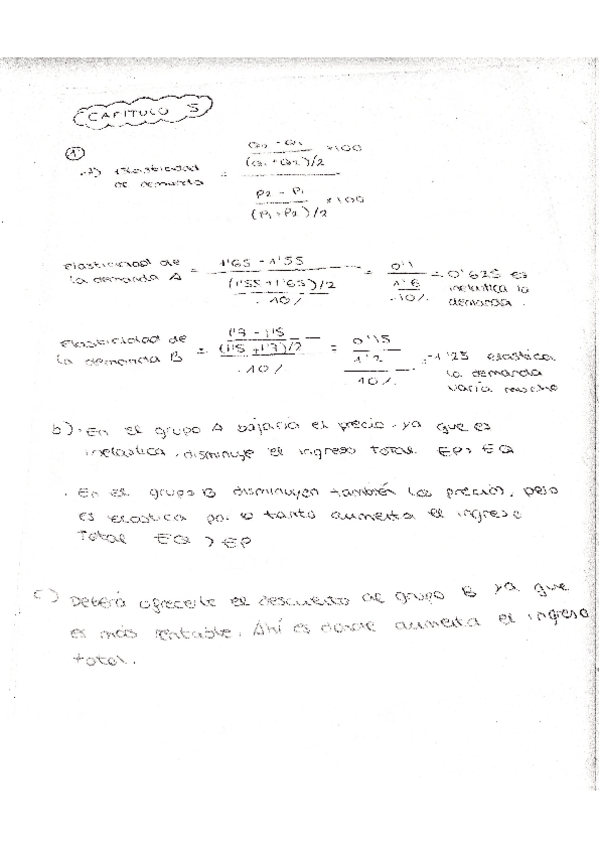 CAPITULO 5
1
a) Elasticidad de demanda = (Q2 - Q1)/((Q1 + Q2)/2) x100 / (P2 - P1)/((P1 + P2)/2) x100
Elasticidad de la demanda A = (1'65 - 1'55)/((1'55 + 1'65)/2) / 10% = (0'1/1'6) / 10% = 0'625 es inelastica la demanda.
Elasticidad de la demanda B = / 10% = / 10% = 1'25 elastica la demanda varia mucho
b) En el grupo A bajaria el precio ya que es
inelastica, disminuye el ingreso total. EP > EQ
. En el grupo B disminuyen también los precios, pero
es elastica por lo tanto aumenta el ingreso
total EQ > EP
c) Deberá ofrecerle el descuento al grupo B ya que
es más rentable. Ahí es donde aumenta el ingreso
total.